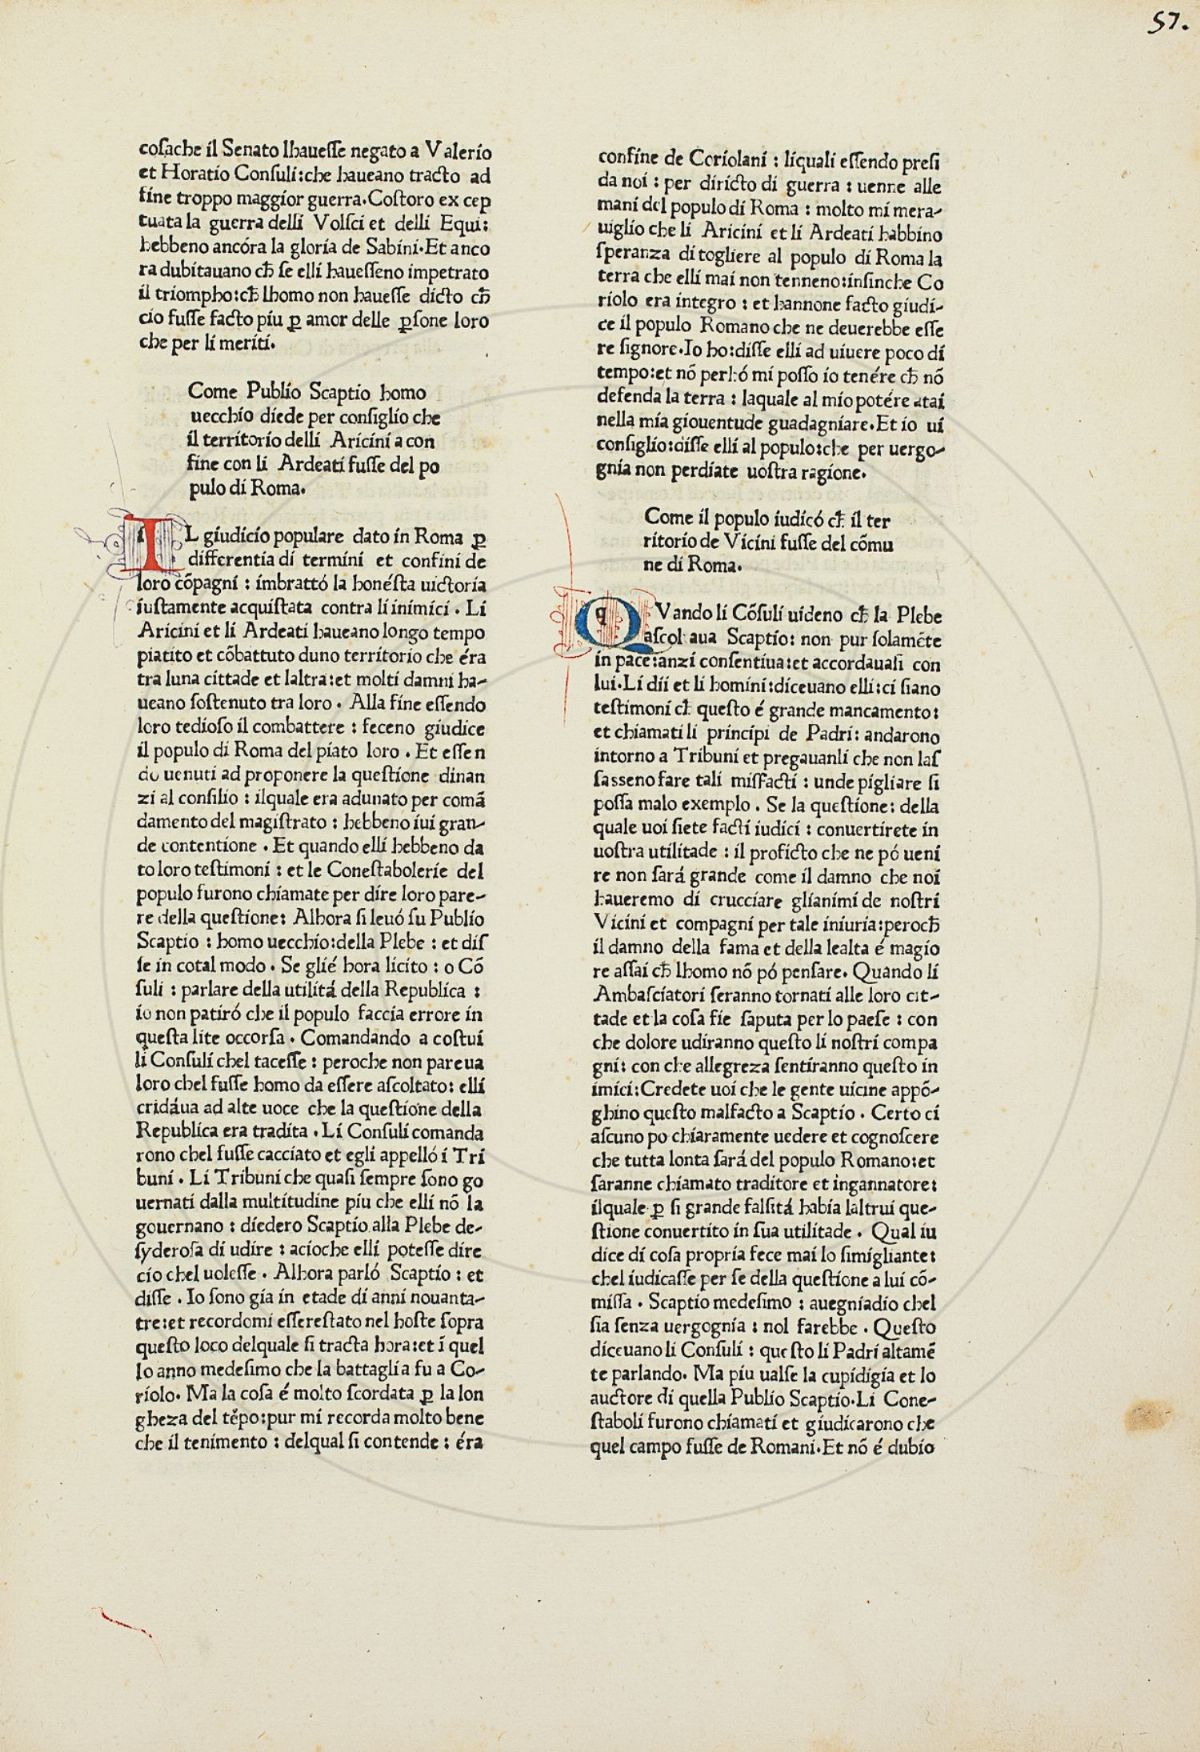 57.
coſache il Senato lhaueſſe negato a Valerio
et Horatio Conſuli:che haueano tracto ad
fine troppo maggior guerra.Coſtoro ex cep
tuata la guerra delli Volſci et delli Equi:
hebbeno ancóra la gloria de Sabini.Et anco
ra dubitauano cħ ſe elli haueſſeno impetrato
il triompho:cħ lhomo non haueſſe dicto cħ
cio fuſſe facto piu ꝑ amor delle ꝑſone loro
che per li meriti.
Come Publio Scaptio homo
uecchio diede per conſiglio che
il territorio delli Aricini a con
fine con li Ardeati fuſſe del po
pulo di Roma.
IL giudicio populare dato in Roma ꝑ
differentia di termini et confini de
loro cõpagni : imbrattó la honéſta uictoria
iuſtamente acquiſtata contra li inimici . Li
Aricini et li Ardeati haueano longo tempo
piatito et cõbattuto duno territorio che éra
tra luna cittade et laltra:et molti damni ha-
ueano ſoſtenuto tra loro . Alla fine eſſendo
loro tedioſo il combattere : feceno giudice
il populo di Roma del piato loro . Et eſſen
do uenuti ad proponere la queſtione dinan
zi al conſilio : ilquale era adunato per comã
damento del magiſtrato : hebbeno iui gran-
de contentione . Et quando elli hebbeno da
to loro teſtimoni : et le Coneſtabolerie del
populo furono chiamate per dire loro pare-
re della queſtione: Alhora ſi leuó ſu Publio
Scaptio : homo uecchio:della Plebe : et diſ
ſe in cotal modo . Se glié hora licito : o Cõ
ſuli : parlare della utilitá della Republica :
io non patiró che il populo faccia errore in
queſta lite occorſa . Comandando a coſtui
li Conſuli chel taceſſe : peroche non pareua
loro chel fuſſe homo da eſſere aſcoltato: elli
cridáua ad alte uoce che la queſtione della
Republica era tradita . Li Conſuli comanda
rono chel fuſſe cacciato et egli appelló i Tri
buni . Li Tribuni che quaſi ſempre ſono go
uernati dalla multitudine piu che elli nõ la
gouernano : diedero Scaptio alla Plebe de-
ſyderoſa di udire : acioche elli poteſſe dire
cio chel uoleſſe . Alhora parló Scaptio : et
diſſe . Io ſono gia in etade di anni nouanta-
tre:et recordomi eſſereſtato nel hoſte ſopra
queſto loco delquale ſi tracta hora:et ĩ quel
lo anno medeſimo che la battaglia fu a Co-
riolo. Ma la coſa é molto ſcordata ꝑ la lon
gheza del tẽpo:pur mi recorda molto bene
che il tenimento : delqual ſi contende : éra
confine de Coriolani : liquali eſſendo preſi
da noi : per diricto di guerra : uenne alle
mani del populo di Roma : molto mi mera-
uiglio che li Aricini et li Ardeati habbino
ſperanza di togliere al populo di Roma la
terra che elli mai non tenneno:inſinche Co
riolo era integro : et hannone facto giudi-
ce il populo Romano che ne deuerebbe eſſe
re ſignore.Io ho:diſſe elli ad uiuere poco di
tempo:et nõ perhó mi poſſo io tenére cħ nõ
defenda la terra : laquale al mio potére atai
nella mia giouentude guadagniare.Et io ui
conſiglio:diſſe elli al populo:che per uergo-
gnia non perdiate uoſtra ragione.
Come il populo iudicó cħ il ter
ritorio de Vicini fuſſe del cõmu
ne di Roma.
QVando li Cõſuli uideno cħ la Plebe
aſcoltaua Scaptio: non pur ſolamẽte
in pace:anzi conſentiua:et accordauaſi con
lui.Li dii et li homini:diceuano elli:ci ſiano
teſtimoni cħ queſto é grande mancamento:
et chiamati li principi de Padri: andarono
intorno a Tribuni et pregauanli che non laſ
ſaſſeno fare tali miſfacti : unde pigliare ſi
poſſa malo exemplo . Se la queſtione: della
quale uoi ſiete facti iudici : conuertirete in
uoſtra utilitade : il proficto che ne pó ueni
re non ſará grande come il damno che noi
haueremo di crucciare glianimi de noſtri
Vicini et compagni per tale iniuria:perocħ
il damno della fama et della lealta é magio
re aſſai cħ lhomo nõ pó penſare. Quando li
Ambaſciatori ſeranno tornati alle loro cit-
tade et la coſa fie ſaputa per lo paeſe : con
che dolore udiranno queſto li noſtri compa
gni: con che allegreza ſentiranno queſto in
imici:Credete uoi che le gente uicine appõ-
ghino queſto malfacto a Scaptio . Certo ci
aſcuno po chiaramente uedere et cognoſcere
che tutta lonta ſará del populo Romano:et
ſaranne chiamato traditore et ingannatore:
ilquale ꝑ ſi grande falſitá habia laltrui que-
ſtione conuertito in ſua utilitade . Qual iu
dice di coſa propria fece mai lo ſimigliante:
chel iudicaſſe per ſe della queſtione a lui cõ-
miſſa . Scaptio medeſimo : auegniadio chel
ſia ſenza uergognia : nol farebbe . Queſto
diceuano li Conſuli : queſto li Padri altamẽ
te parlando. Ma piu ualſe la cupidigia et lo
auctore di quella Publio Scaptio.Li Cone-
ſtaboli furono chiamati et giudicarono che
quel campo fuſſe de Romani.Et nõ é dubio